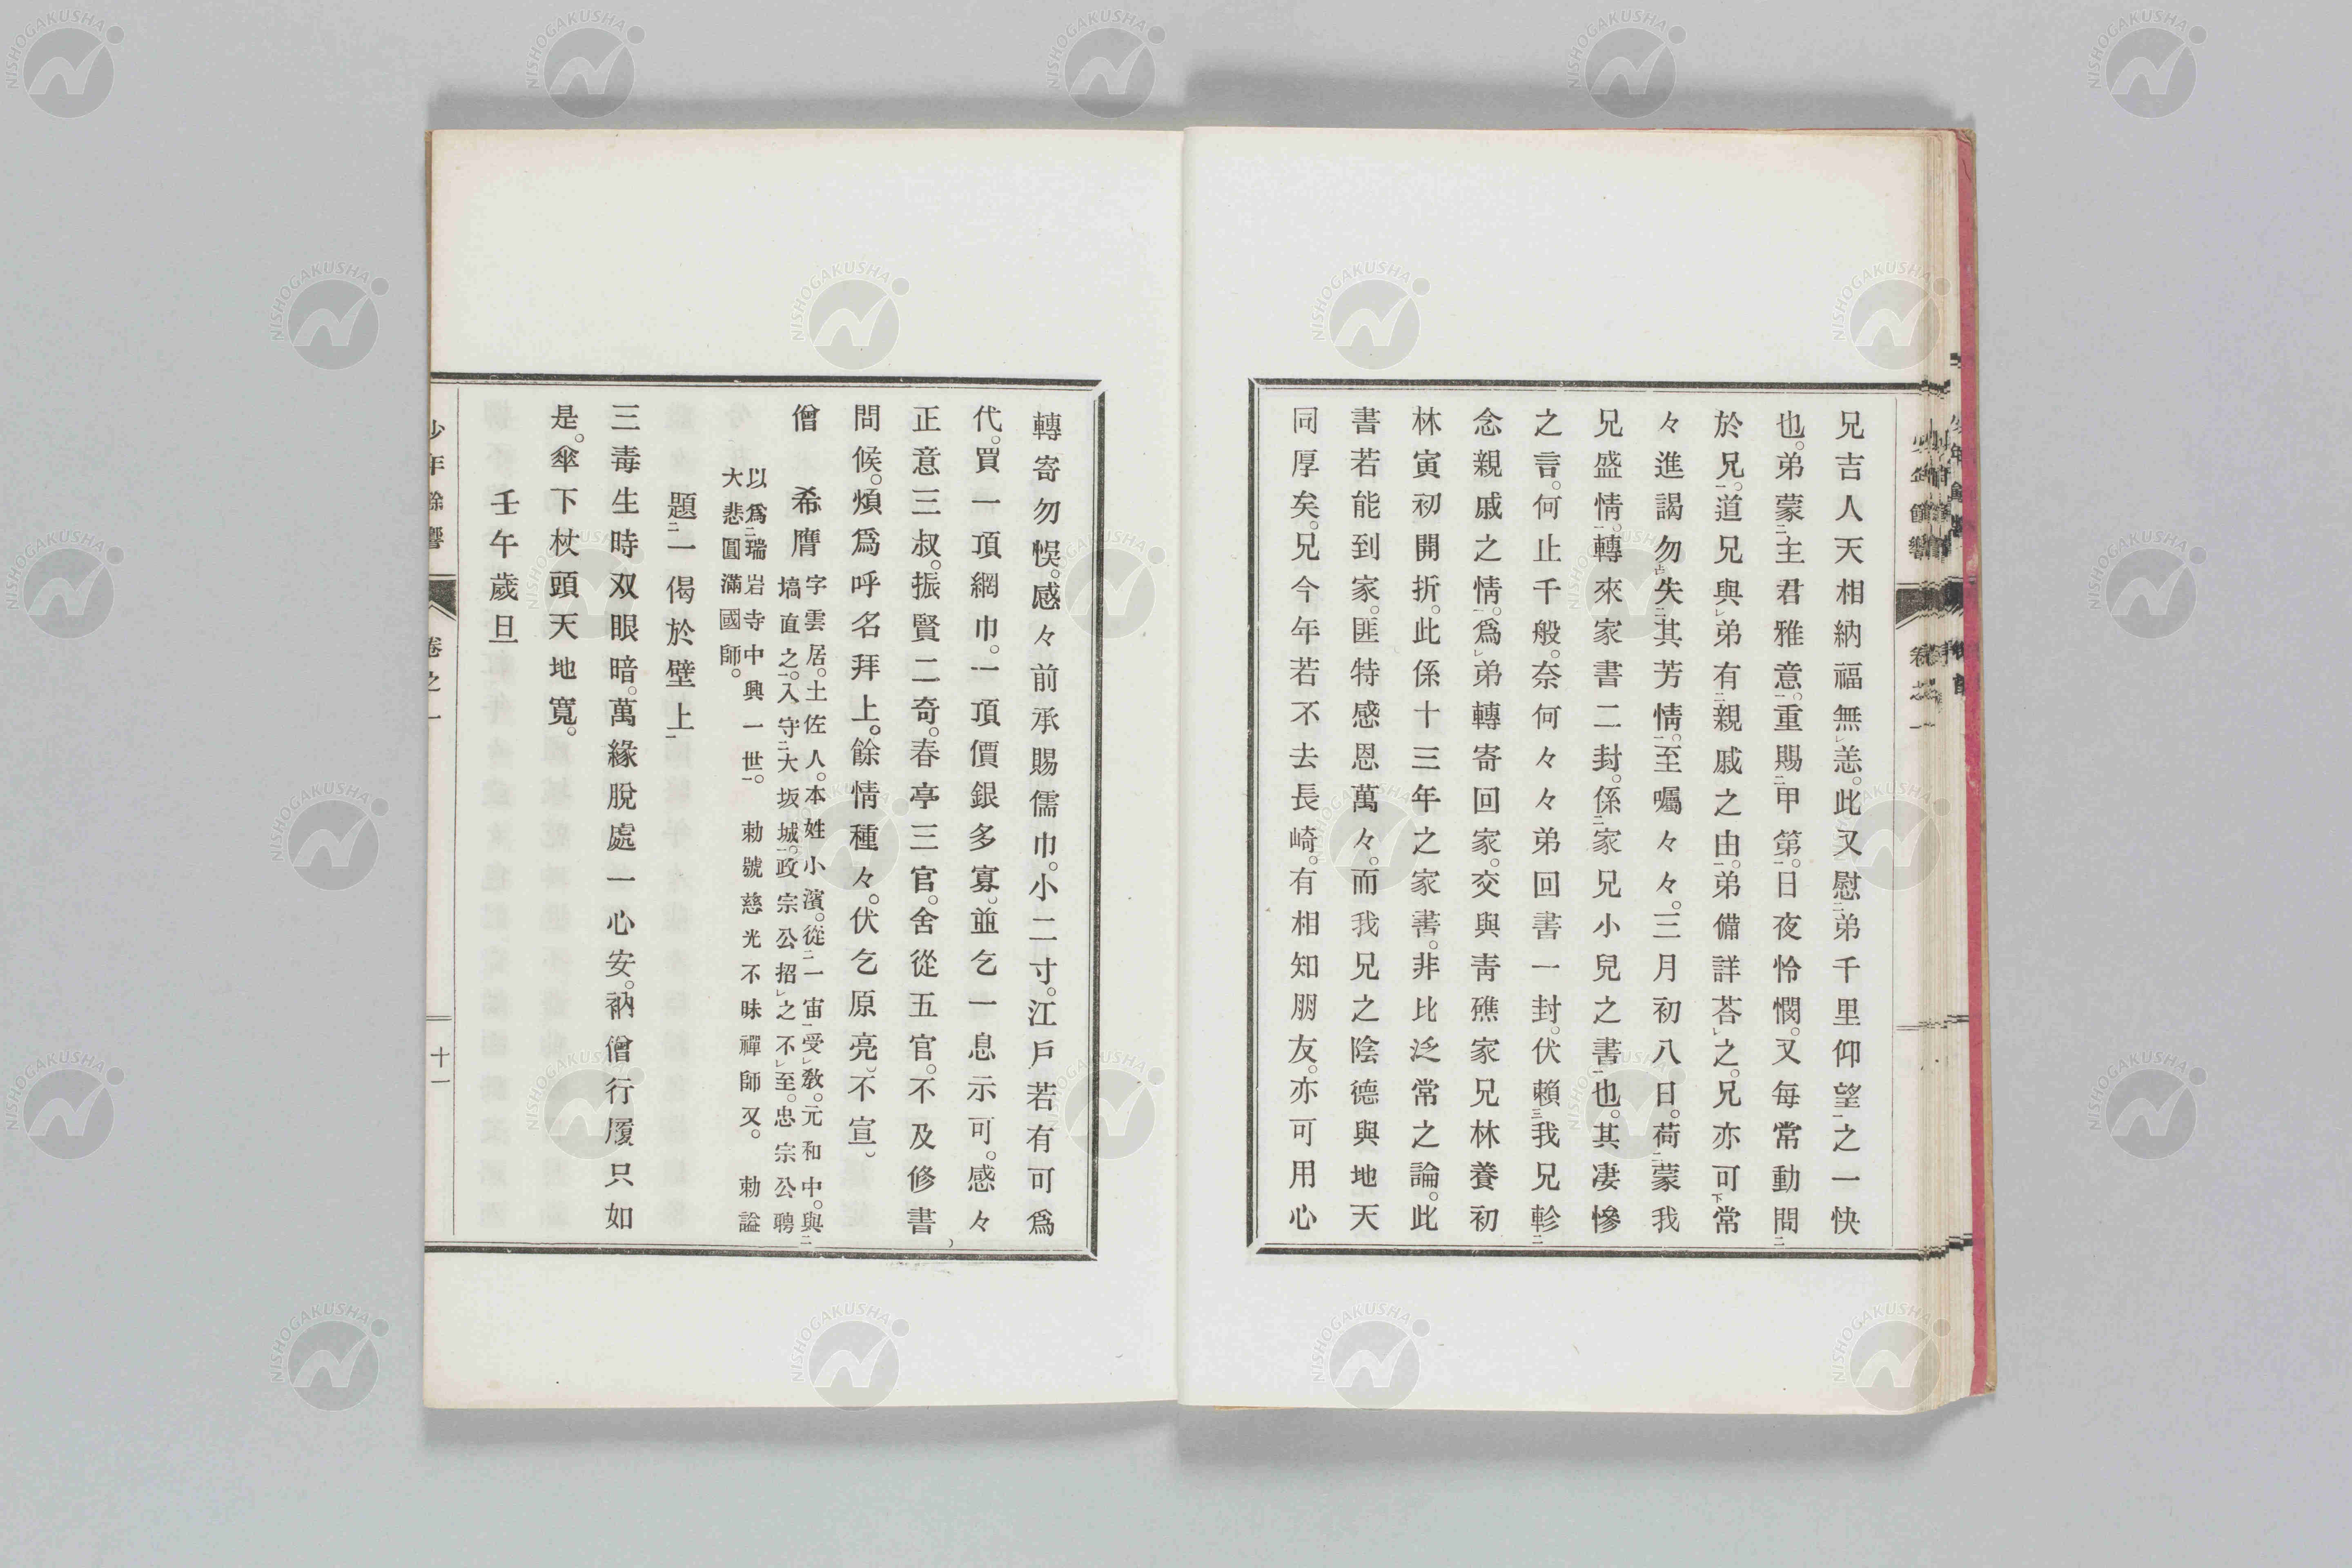 兄吉人天相納福無レ恙。此又慰二弟千里仰望一之一快
也。弟蒙二主君雅意一。重賜二甲第一。日夜怜憫。又每常動問二
於兄一。道兄與レ弟有二親戚之由一。弟備詳荅レ之。兄亦可下常
々進謁勿占失二其芳情一。至囑々々。三月初八日。荷二蒙我
兄盛情一。轉來家書二封。係二家兄小兒之書一也。其凄慘
之言。何止千般。奈何々々弟回書一封。伏賴三我兄軫二
念親戚之情一。爲レ弟轉寄回家。交與靑礁家兄林養初
林寅初開折。此係十三年之家書。非比泛常之論。此
書若能到家。匪特感恩萬々。而我兄之陰德與地天
同厚矣。兄今年若不去長崎。有相知朋友。亦可用心
轉寄勿悞。感々前承賜儒巾。小二寸。江戶若有可爲
代。買一頂網巾。一頂價銀多寡。並乞一息示可。感々
正意三叔。振賢二奇。春亭三官。舍從五官。不及修書
問候。煩爲呼名拜上。餘情種々。伏乞原亮。不宣。
僧希膺
字雲居。土佐人。本姓小濱。從二一宙一受レ敎。元和中。與二
塙直之一。入守二大坂城一。政宗公招レ之不レ至。忠宗公聘
以爲二瑞岩寺中興一世一。勅號慈光不昧禪師又。勅謚
大悲圓滿國師。
題二一偈於壁上一
三毒生時双眼暗。萬緣脫處一心安。衲僧行履只如
是。傘下杖頭天地寬。
壬午歲旦
少年餘響
卷之一
十一
少年餘響
卷之一
NISHOGAKUSHA